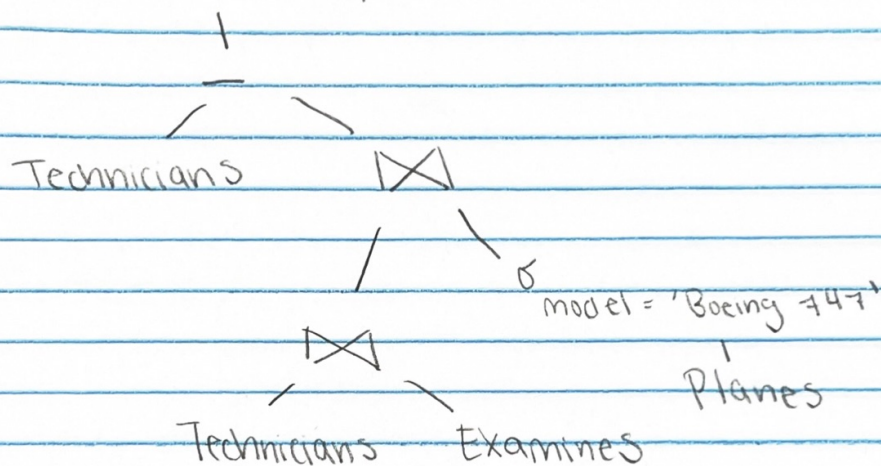 −
Technicians ⋈
σ model = 'Boeing 747'
⋈
Planes
Technicians Examines